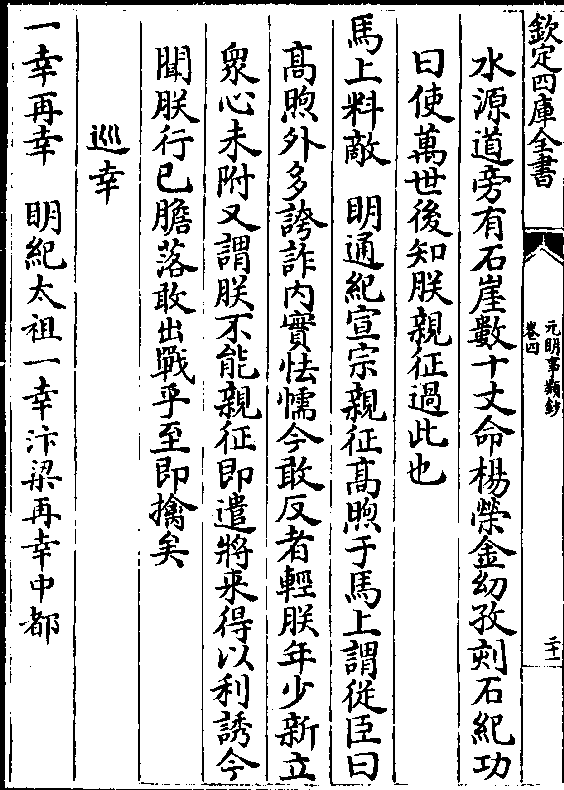 欽定四庫全書
元明事類鈔
卷四
二十一
水源道旁有石崖數十丈命楊榮金幼孜刻石紀功
曰使萬世後知朕親征過此也
馬上料敵　明通紀宣宗親征高煦于馬上謂從臣曰
高煦外多誇詐内實怯懦今敢反者輕朕年少新立
衆心未附又謂朕不能親征即遣將来得以利誘今
聞朕行已膽落敢出戰乎至即擒矣
巡幸
一幸再幸　明紀太祖一幸汴梁再幸中都